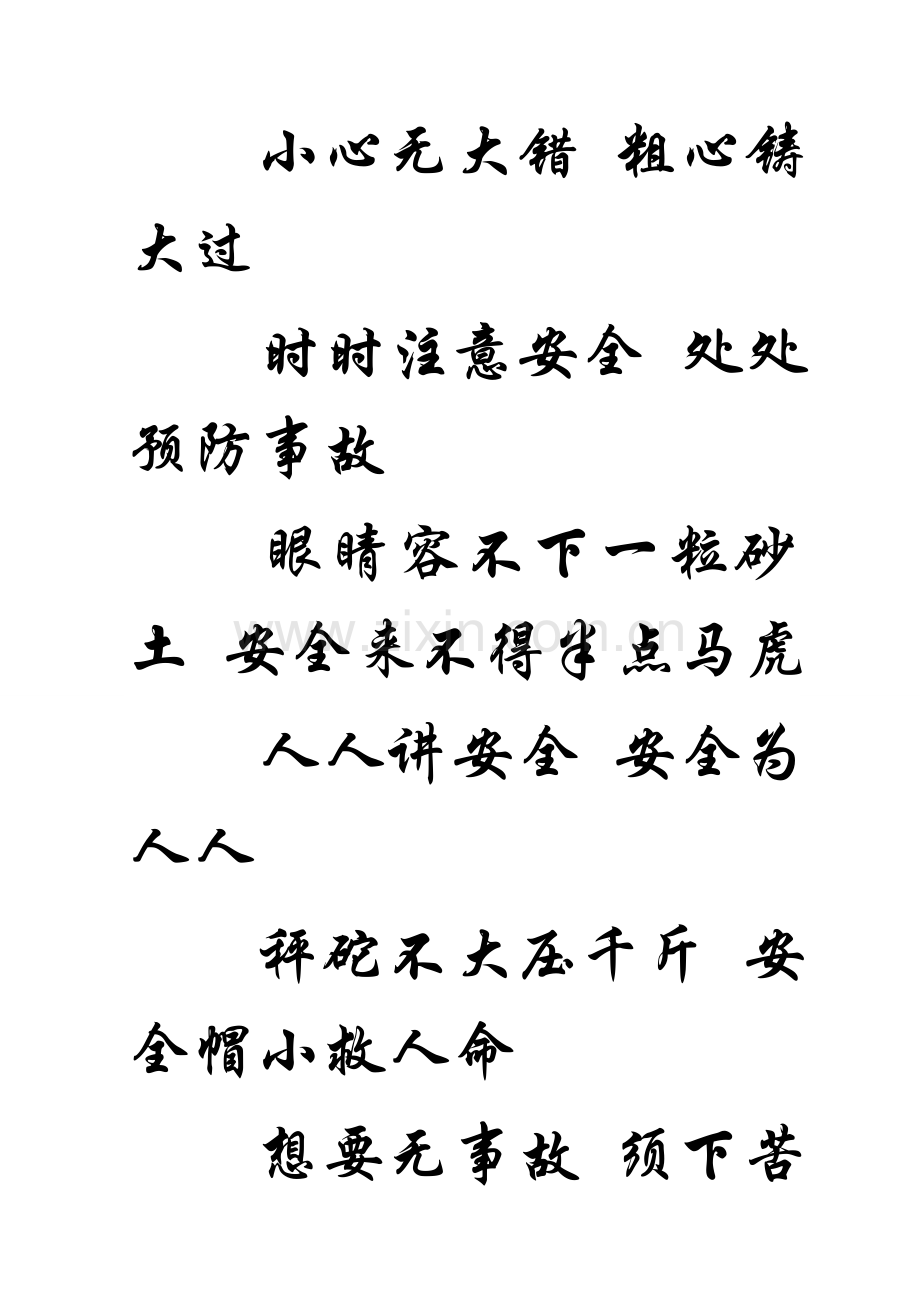 小心无大错 粗心铸
大过
时时注意安全 处处
预防事故
眼睛容不下一粒砂
土 安全来不得半点马虎
人人讲安全 安全为
人人
秤砣不大压千斤 安
全帽小救人命
想要无事故 须下苦
www.zixin.com.cn